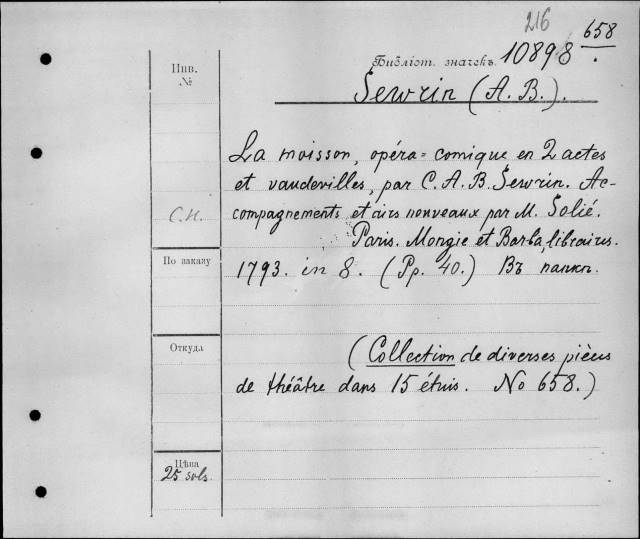 216
658
Библіот. значекъ 10898.
Инв.
№
Sewrin (A. B.).
La moisson, opéra=comique en 2 actes
et vaudevilles, par C. A. B. Sewrin. Ac-
C.H. compagnements et airs nouveaux par M. Solié.
Paris. Mongie et Barba, libraires.
По заказу
1793. in 8. (Pp. 40.) Въ папкѣ.
Откуда
(Collection de diverses pièces
de théâtre dans 15 étuis. No 658.)
Цѣна
25 sols.